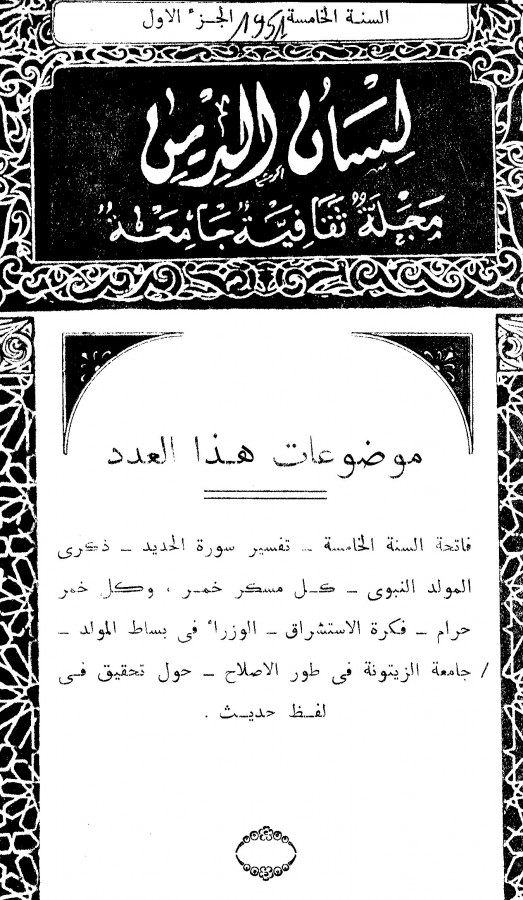 السنة الخامسة 1951 الجزء الاول
لِسَانُ الدِّين
مَجَلَّةٌ ثَقَافِيَّةٌ جَامِعَةٌ
موضوعات هذا العدد
فاتحة السنة الخامسة ـ تفسير سورة الحديد ـ ذكرى
المولد النبوى ـ كل مسكر خمر ، وكل خمر
حرام ـ فكرة الاستشراق ـ الوزراء فى بساط المولد ـ
/ جامعة الزيتونة فى طور الاصلاح ـ حول تحقيق فى
لفظ حديث .